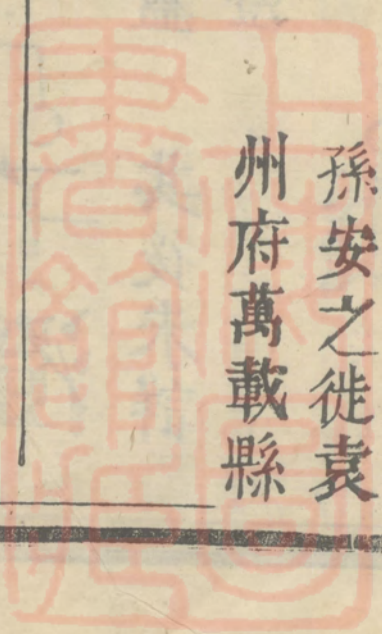 孫安之徙袁
州府萬載縣